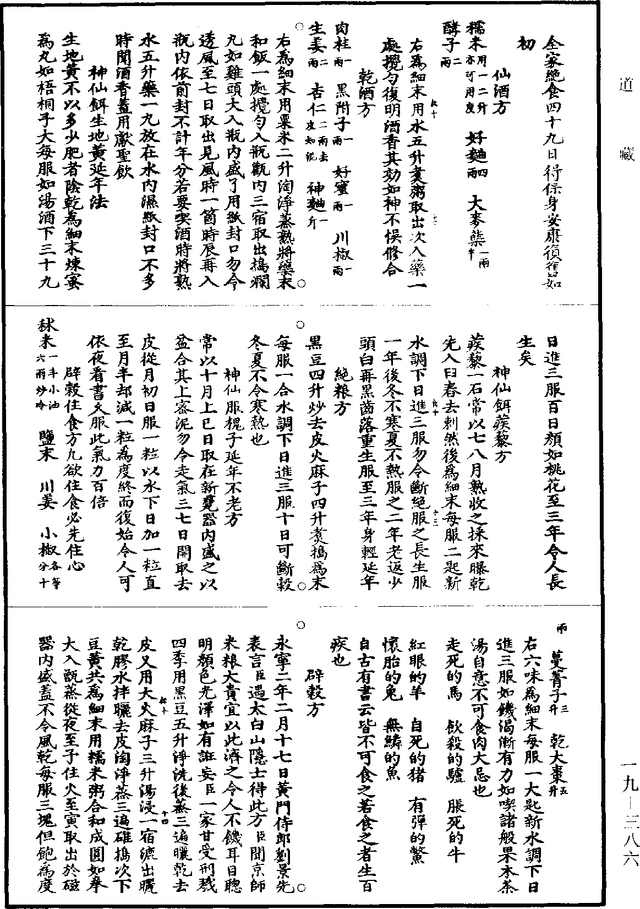 道藏
全家絕食四十九日得保身安康復舊如
初
仙酒方
糯米用一二升亦可用度 好麵四兩 大麥櫱一兩半
酵子二兩
右為細末用水五升煑粥取出次入藥一
處攪勻復明酒香其効如神不悞修合
乾酒方
肉桂一兩 黑附子一兩 好蜜一兩 川椒一兩
生姜二兩 杏仁二兩去皮如泥 神麵一斤
右為細末用粟米二升淘淨蒸熟將藥末
和飯一處攪勻入瓶甕內三宿取出搗爛
丸如雞頭大入瓶內盛了用紙封口勿令
透風至七日取出見風時一箇時辰再入
瓶內依前封不計年分若要喫酒時將熟
水五升藥一丸放在水內濕紙封口不多
時聞酒香蓋用獻聖飲
神仙餌生地黃延年法
生地黃不以多少肥者陰乾為細末煉蜜
為丸如梧桐子大每服如湯酒下三十九
日進三服百日顏如桃花至三年令人長
生矣
神仙餌蒺藜方
蒺藜一石常以七八月熟收之採來曝乾
先入臼舂去刺然後為細末每服二匙新
水調下日進三服勿令斷絕服之長生服
一年後冬不寒夏不熱服之二年老返少
頭白再黑齒落重生服至三年身輕延年
絕粮方
黑豆四升炒去皮火麻子四升煑搗為末
每服一合水調下日進三服十日可斷穀
冬夏不令寒熱也
神仙服槐子延年不老方
常以十月上巳日取在新甕器內盛之以
盆合其上密泥勿令走氣三七日開取去
皮從月初日服一粒以水下日加一粒直
至月半却減一粒為度終而復始令人可
依夜看書久服此氣力百倍
辟穀住食方九欲住食必先住心
秫米一斗小油六兩炒冷 鹽末 川姜 小椒各等分十
兩 蔓菁子三升 乾大棗五升
右六味為細末每服一大匙新水調下日
進三服如饑渴漸有力如喫諸般果木茶
湯自意不可食肉大忌也
走死的馬 飲殺的驢 脹死的牛
紅眼的羊 自死的猪 有彈的鱉
懷胎的兔 無鱗的魚
自古有書云皆不可食之若食之者生百
疾也
辟穀方
永寧二年二月十七日黃門侍郎劉景先
表言臣遇太白山隱士得此方臣聞京師
米粮大貴宜以此濟之令人不饑耳目聰
明顏色光澤如有誑妄臣一家甘受刑戮
四季用黑豆五升淨洗後蒸三遍曬乾去
皮又用大火麻子三升湯浸一宿漉出曬
乾膠水拌曬去皮淘淨蒸三遍碓搗次下
豆黃共為細末用糯米粥合和成圓如拳
大入甑蒸從夜至子住火至寅取出於磁
器內盛蓋不令風乾每服三塊但飽為度
一九-三八六